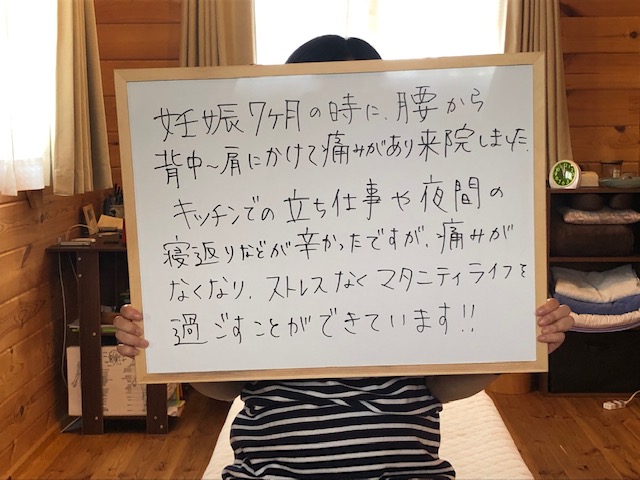 妊娠7ヶ月の時に、腰から
背中〜肩にかけて痛みがあり来院しました。
キッチンでの立ち仕事や夜間の
寝返りなどが辛かったですが、痛みが
なくなり、ストレスなくマタニティライフを
過ごすことができています!!